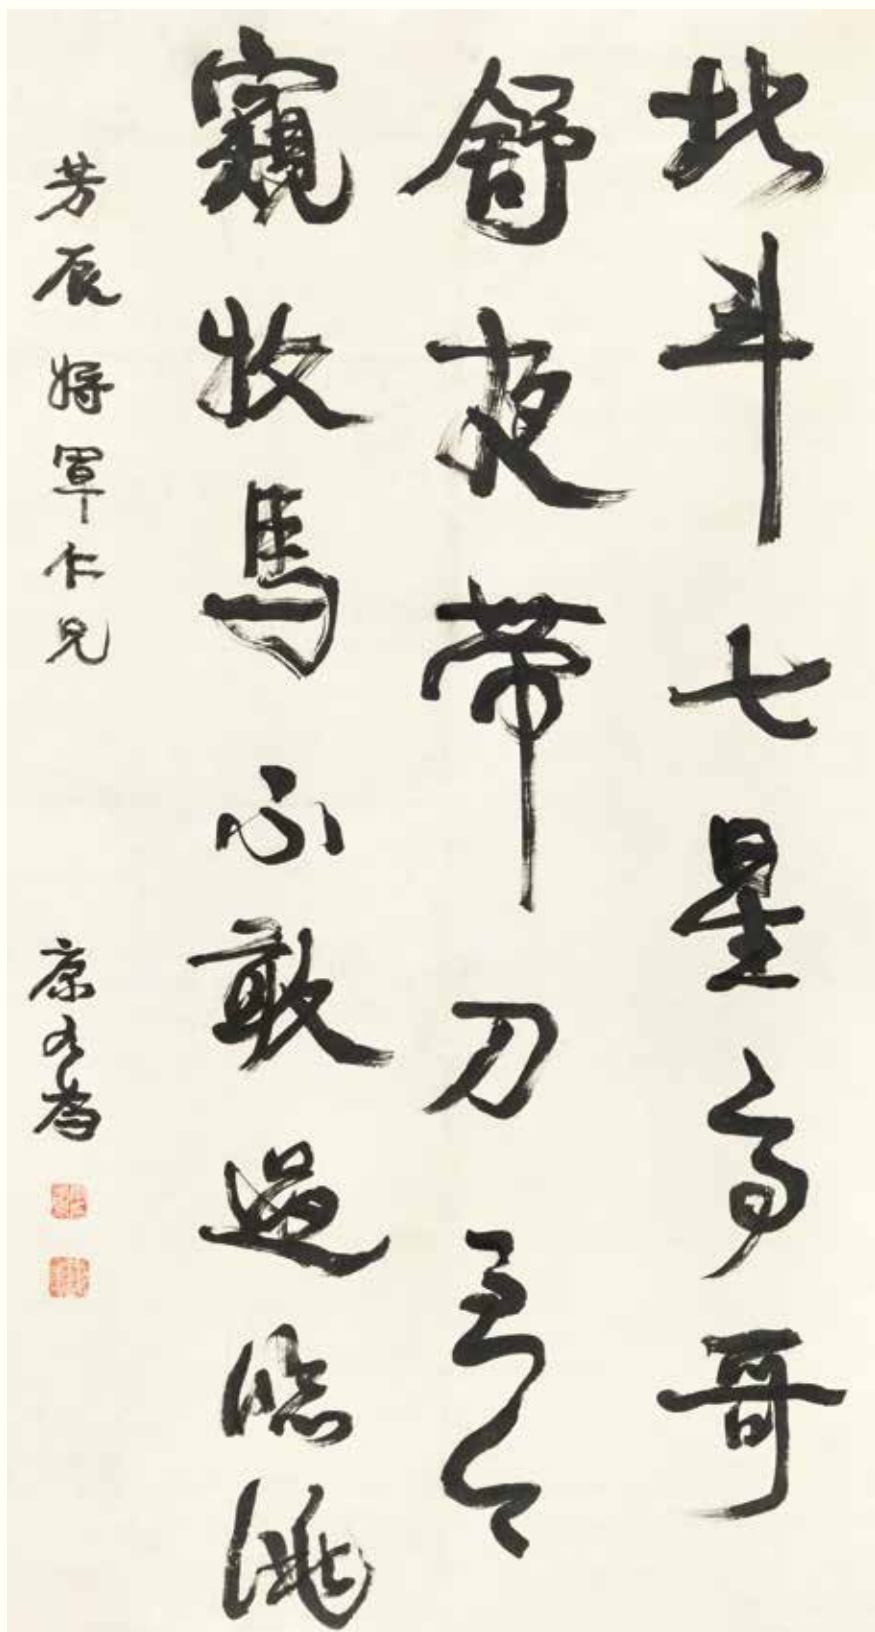 北斗七星高哥
舒夜帶刀至今
窺牧馬不敢過臨洮
芳辰將軍仁兄
康有為